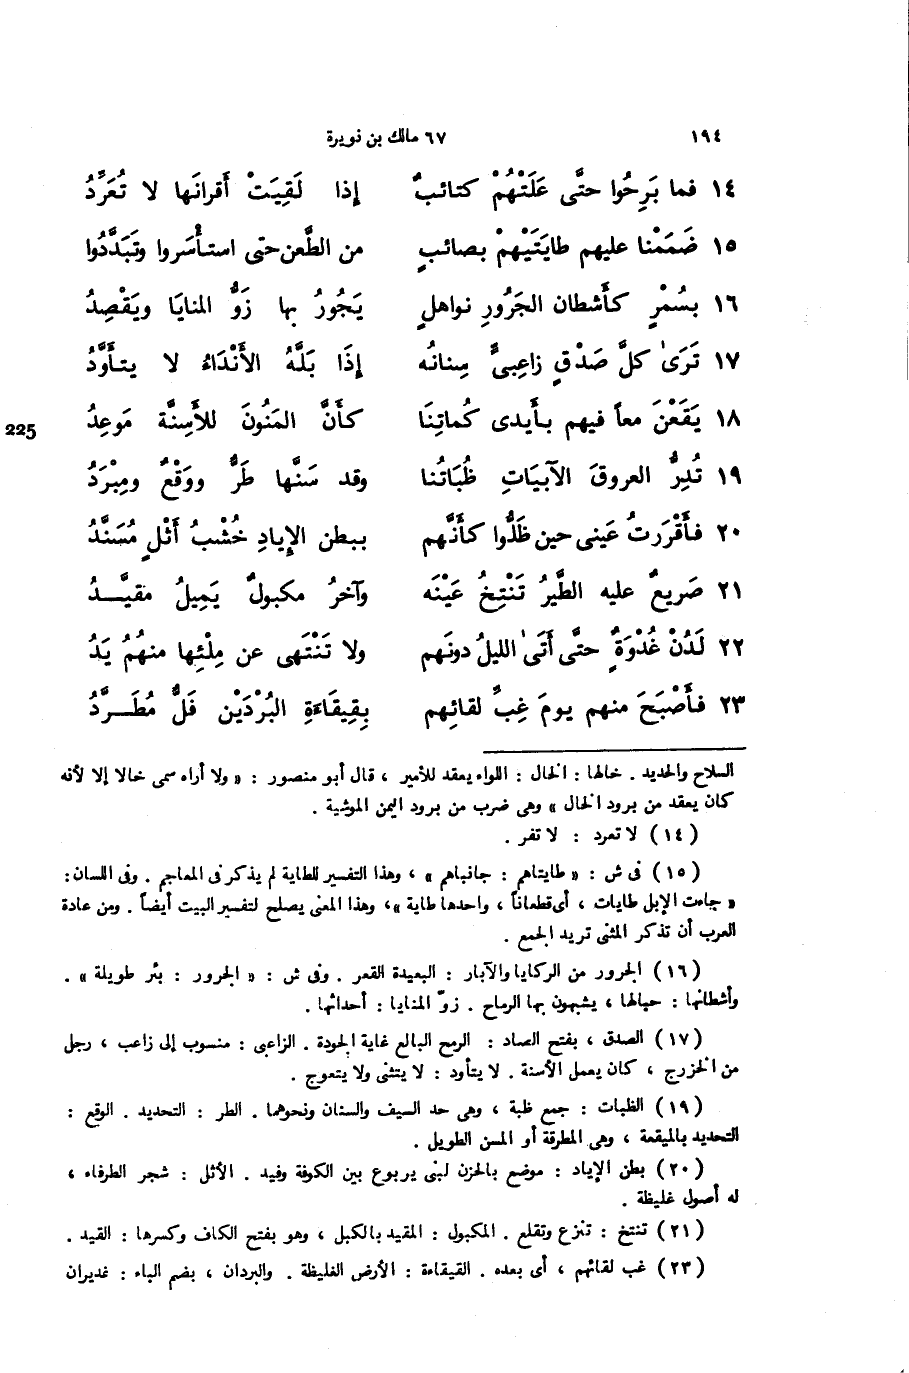 ١٩٤
٦٧ مالك بن نويرة
١٤ فما بَرِحُوا حتَّى عَلَتْهُمْ كتائبٌ إذا لَقِيَتْ أقرانَها لا تُعَرِّدُ
١٥ ضَمَمْنا عليهم طايَتَيْهِمْ بصائبٍ من الطَّعن حتى استأْسَروا وتَبَدَّدُوا
١٦ بِسُمْرٍ كأَشطان الجَرُورِ نواهلٍ يَجُورُ بها زَوُّ المنايَا ويَقْصِدُ
١٧ تَرَىٰ كلَّ صَدْقٍ زاعِبىٍّ سِنانُه إذَا بَلَّهُ الأَنْدَاءُ لا يتأَوَّدُ
١٨ يَقَعْنَ معاً فيهم بأَيدى كُماتِنَا كأَنَّ المَنُونَ للأَسِنَّة مَوعِدُ
225
١٩ تُدِرُّ العروقَ الآبيَاتِ ظُبَاتُنا وقد سَنَّها طَرٌّ ووَقْعٌ ومِبْرَدُ
٢٠ فأَقْرَرتُ عَينى حين ظَلُّوا كأَنَّهم ببطن الإِيادِ خُشْبُ أَثْلٍ مُسَنَّدُ
٢١ صَريعٌ عليه الطَّيرُ تَنْتِخُ عَيْنَه وآخرُ مكبولٌ يَمِيلُ مقيَّدُ
٢٢ لَدُنْ غُدْوَةٍ حتَّى أَتَىٰ الليلُ دونَهم ولا تَنْتَهى عن مِلْئِها منهُمُ يَدُ
٢٣ فأَصْبَحَ منهم يومَ غِبِّ لقائِهم بِقِيقَاءَةِ البُرْدَيْن فَلٌّ مُطَرَّدُ
السلاح والحديد . خالها : الخال : اللواء يعقد للأمير ، قال أبو منصور : « ولا أراه سمى خالا إلا لأنه
كان يعقد من برود الخال » وهى ضرب من برود اليمن الموشية .
( ١٤ ) لا تعرد : لا تفر .
( ١٥ ) فى ش : « طايتاهم : جانباهم » ، وهذا التفسير للطاية لم يذكر فى المعاجم . وفى اللسان :
« جاءت الإبل طايات ، أى قطعاناً ، واحدها طاية » ، وهذا المعنى يصلح لتفسير البيت أيضاً . ومن عادة
العرب أن تذكر المثنى تريد الجمع .
( ١٦ ) الجرور من الركايا والآبار : البعيدة القعر . وفى ش : « الجرور : بئر طويلة » .
وأشطانها : حبالها ، يشبهون بها الرماح . زوّ المنايا : أحداثها .
( ١٧ ) الصدق ، بفتح الصاد : الرمح البالغ غاية الجودة . الزاعبى : منسوب إلى زاعب ، رجل
من الخزرج ، كان يعمل الأسنة . لا يتأود : لا يتثنى ولا يتعوج .
( ١٩ ) الظبات : جمع ظبة ، وهى حد السيف والسنان ونحوهما . الطر : التحديد . الوقع :
التحديد بالميقعة ، وهى المطرقة أو المسن الطويل .
( ٢٠ ) بطن الإياد : موضع بالحزن لبنى يربوع بين الكوفة وفيد . الأثل : شجر الطرفاء ،
له أصول غليظة .
( ٢١ ) تنتخ : تنزع وتقلع . المكبول : المقيد بالكبل ، وهو بفتح الكاف وكسرها : القيد .
( ٢٣ ) غب لقائهم ، أى بعده . القيقاءة : الأرض الغليظة . والبردان ، بضم الباء : غديران